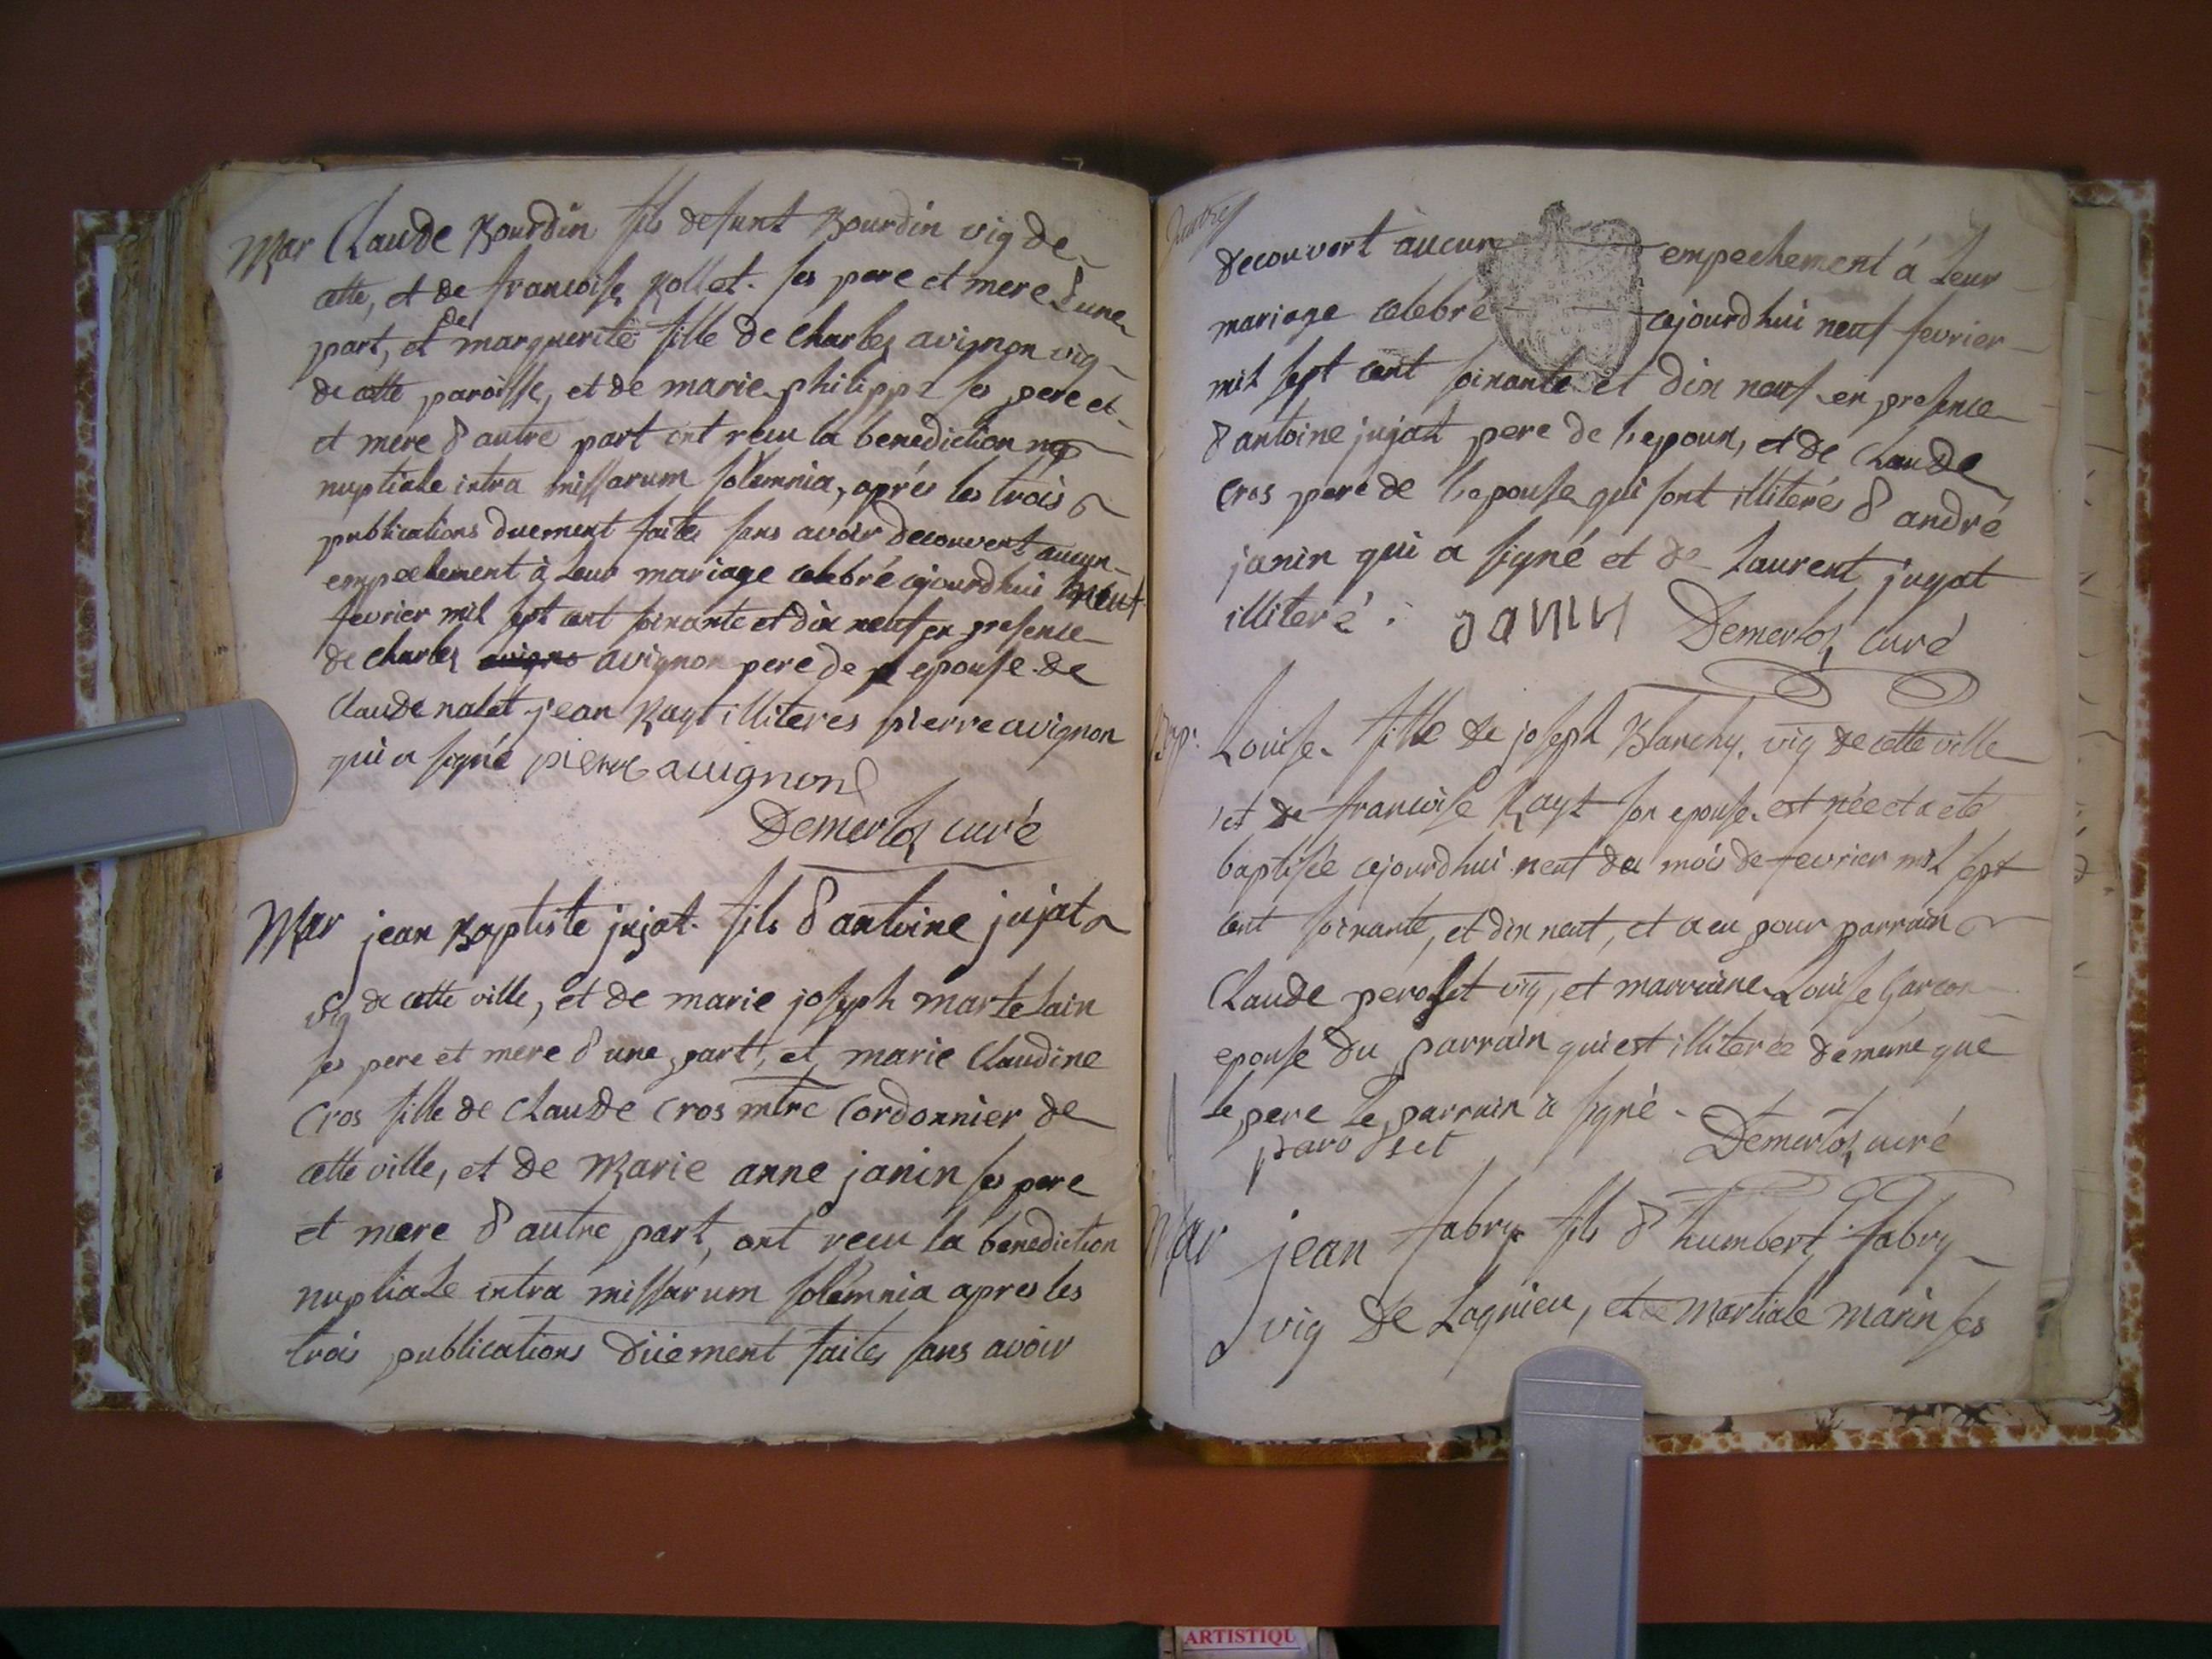 Mar Claude Bourdin fils defunt Bourdin vig de
cette, et de francoise Rollet. ses pere et mere d'une
part, et de marguerite fille de charles avignon vig
de cette paroisse, et de marie philippe ses pere et
et mere d'autre part ont recu la benediction
nuptiale intra missarum solemnia, aprés les trois
publications duement faites sans avoir decouvert aucun
empechement à leur mariage celebré cejourdhui neuf
fevrier mil sept cent soixante et dix neuf en presence
de charles avigno avignon pere de epouse de
Claude nalet jean Rayt illiteres pierre avignon
qui a signé pierre avignon
Demerloz curé
Mar jean Baptiste jujat. fils d'antoine jujat
vig de cette ville, et de marie joseph martelain
ses pere et mere d'une part, et marie Claudine
Cros fille de Claude Cros mtre Cordonnier de
cette ville, et de Marie anne janin ses pere
et mere d'autre part, ont recu la benediction
nuptiale intra missarum solemnia apres les
trois publications düement faites sans avoir
decouvert aucun empechement á leur
mariage celebré cejourdhui neuf fevrier
mil sept cent soixante et dix neuf en presence
d'antoine jujat pere de l'epoux, et de Claude
Cros pere de l'epouse qui sont illiterés d'andré
janin qui a signé et de Laurent jujat
illiteré. Janin Demerloz curé
Bap. Louise fille de joseph Blanchy. vig de cette ville
et de francoise Rayt son epouse. est née et a eté
baptisée cejourdhui neuf du mois de fevrier mil sept
cent soixante, et dix neuf, et a eu pour parrain
Claude peroset vig, et marraine Louise Garcon
epouse du parrain qui est illiterée de meme que
le pere le parrain a signé.
paroset Demerloz curé
Mar jean fabry fils d'humbert fabry
vig de Lagnieu, et de martiale marin ses
ARTISTIQU